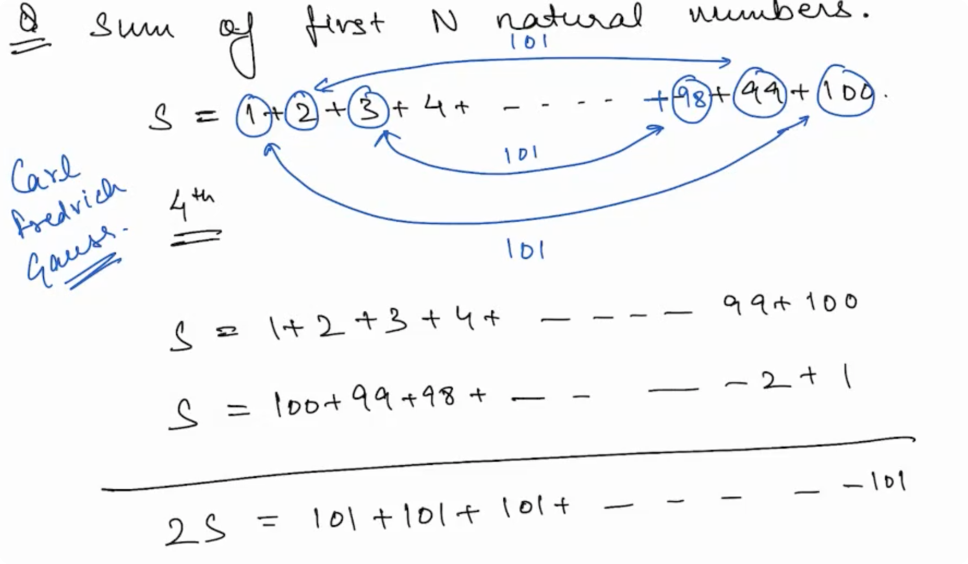 Q Sum of first N natural numbers.
101
S = 1+2+3+4+ - - - - - +98+99+100.
101
Carl
Fredrich
Gauss.
4th
101
S = 1+2+3+4+ - - - - 99+100
S = 100+99+98+ - - - - 2+1
2S = 101+101+101+ - - - - - 101